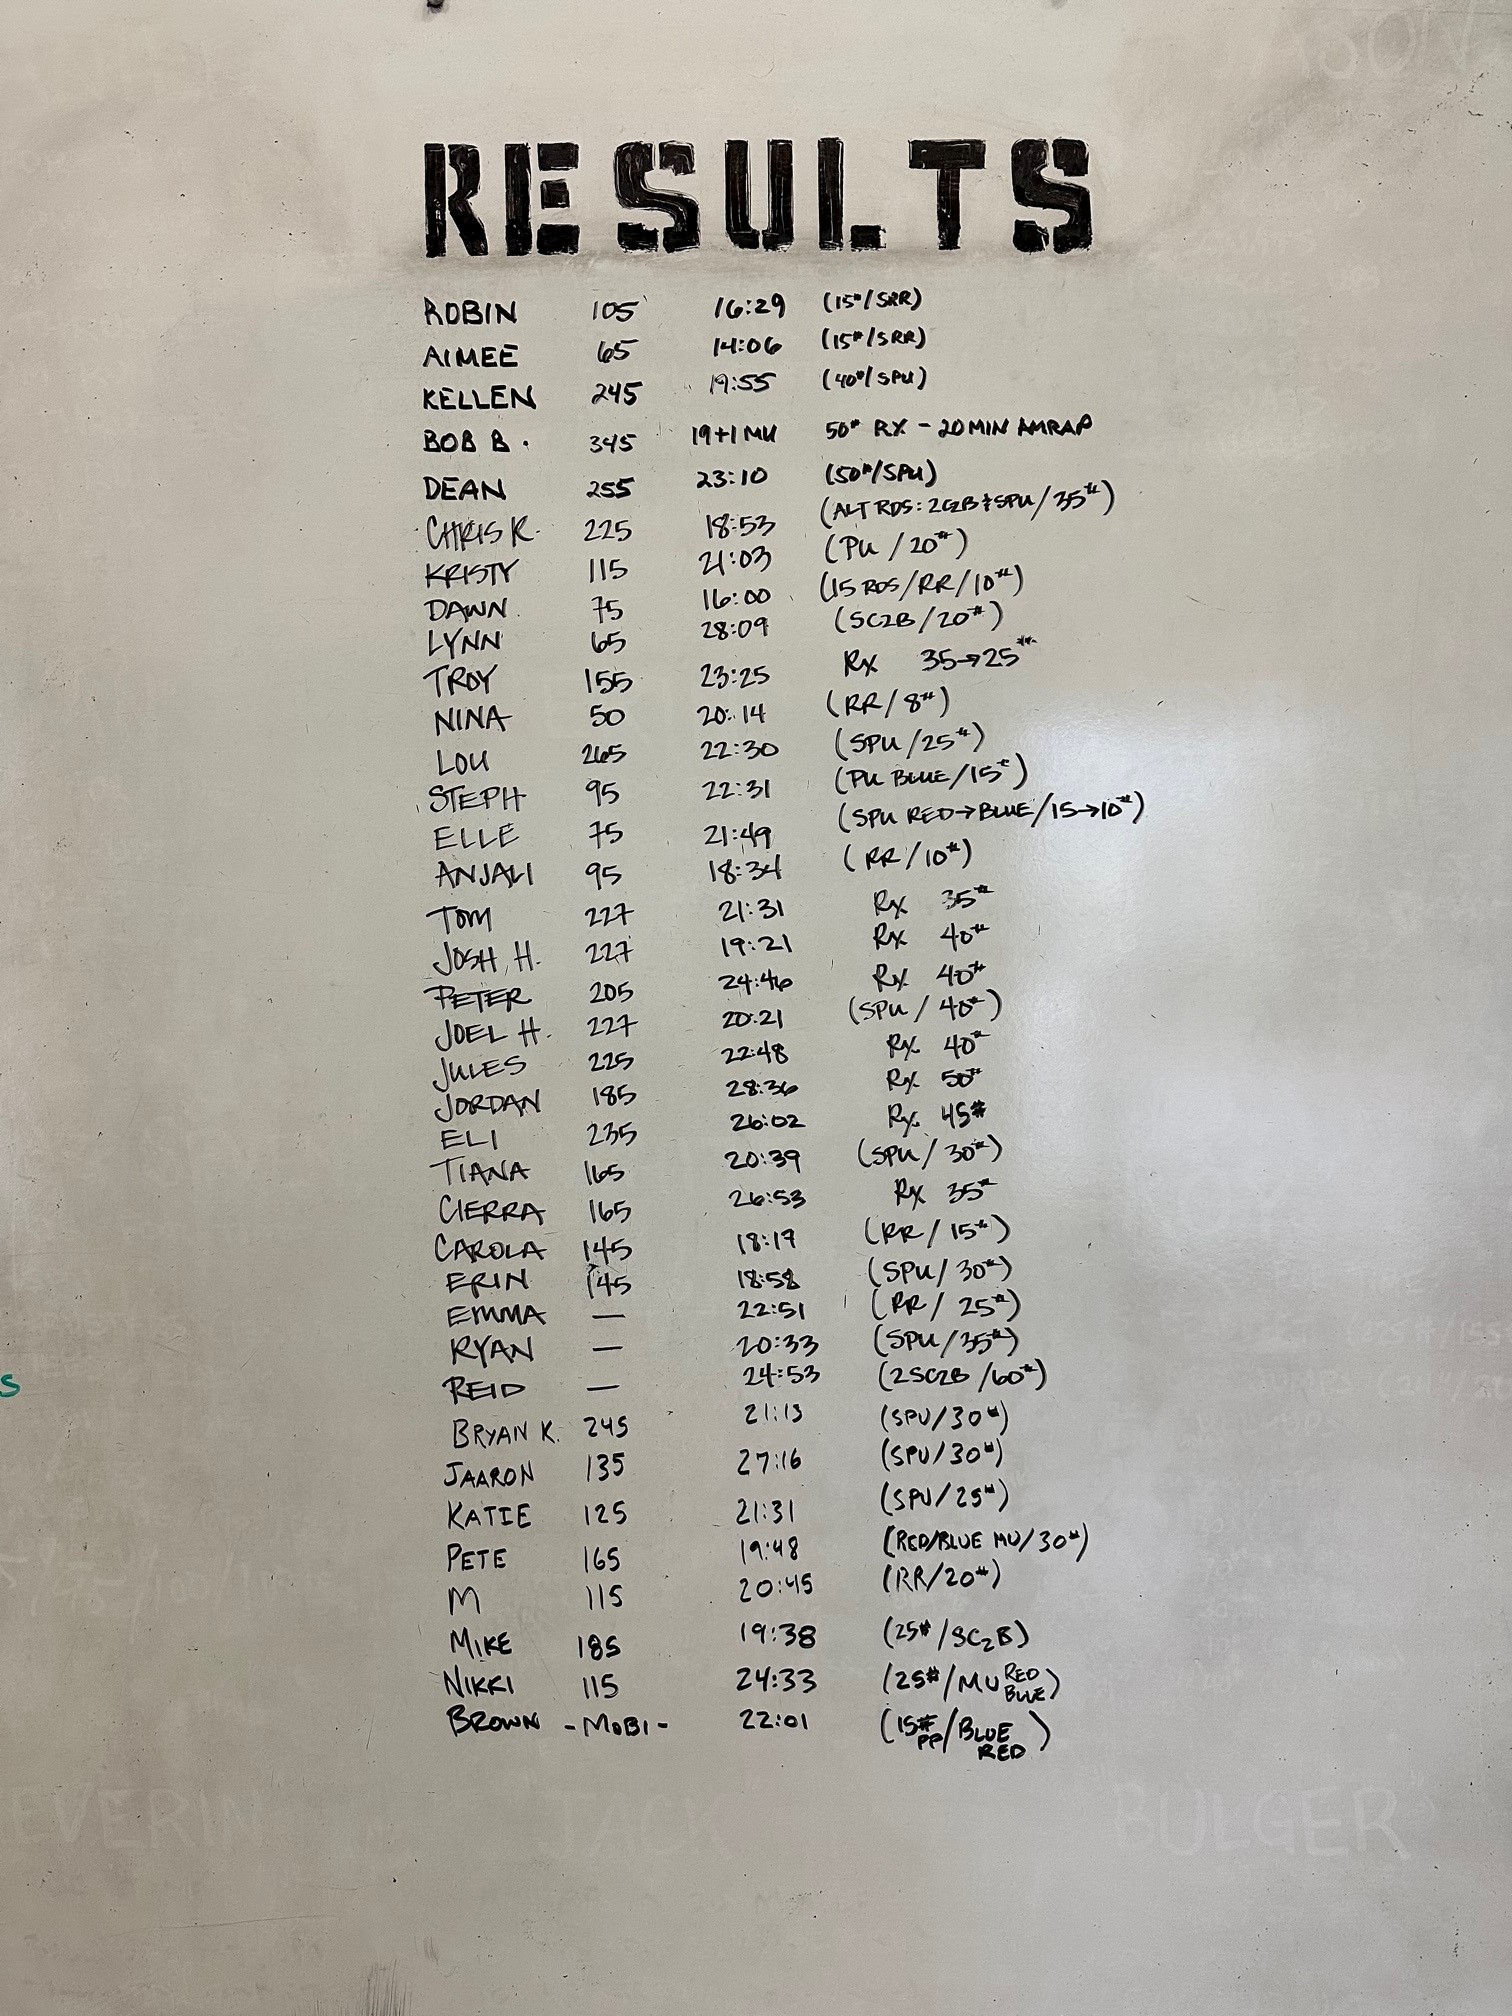 RESULTS
ROBIN 105 16:29 (15#/SRR)
AIMEE 65 14:06 (15#/SRR)
KELLEN 245 19:55 (40#/SPU)
BOB B. 345 19+1 MU 50# RX - 20 MIN AMRAP
DEAN 255 23:10 (50#/SPU)
CHRIS K. 225 18:53 (ALT RDS: 2C2B & SPU/35#)
KRISTY 115 21:03 (PU/20#)
DAWN 75 16:00 (15 RDS/RR/10#)
LYNN 65 28:09 (SC2B/20#)
TROY 155 23:25 Rx 35→25#
NINA 50 20:14 (RR/8#)
LOU 265 22:30 (SPU/25#)
STEPH 95 22:31 (PU BLUE/15#)
ELLE 75 21:49 (SPU RED→BLUE/15→10#)
ANJALI 95 18:34 (RR/10#)
TOM 227 21:31 Rx 35#
JOSH H. 227 19:21 Rx 40#
PETER 205 24:46 Rx 40#
JOEL H. 227 20:21 (SPU/40#)
JULES 225 22:48 Rx 40#
JORDAN 185 28:36 Rx 50#
ELI 235 26:02 Rx 45#
TIANA 165 20:39 (SPU/30#)
CIERRA 165 26:53 Rx 35#
CAROLA 145 18:17 (RR/15#)
ERIN 145 18:58 (SPU/30#)
EMMA — 22:51 (RR/25#)
RYAN — 20:33 (SPU/35#)
REID — 24:53 (2SC2B/60#)
BRYAN K. 245 21:13 (SPU/30#)
JAARON 135 27:16 (SPU/30#)
KATIE 125 21:31 (SPU/25#)
PETE 165 19:48 (RED/BLUE MU/30#)
M 115 20:45 (RR/20#)
MIKE 185 19:38 (25#/SC2B)
NIKKI 115 24:33 (25#/MU RED BLUE)
BROWN -MOBI- 22:01 (15# PP/BLUE RED)
JACK
BULGER